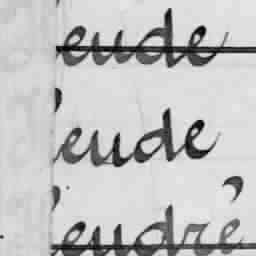 'eude
'eude
'eudré